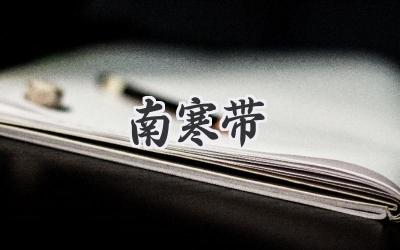 南寒带